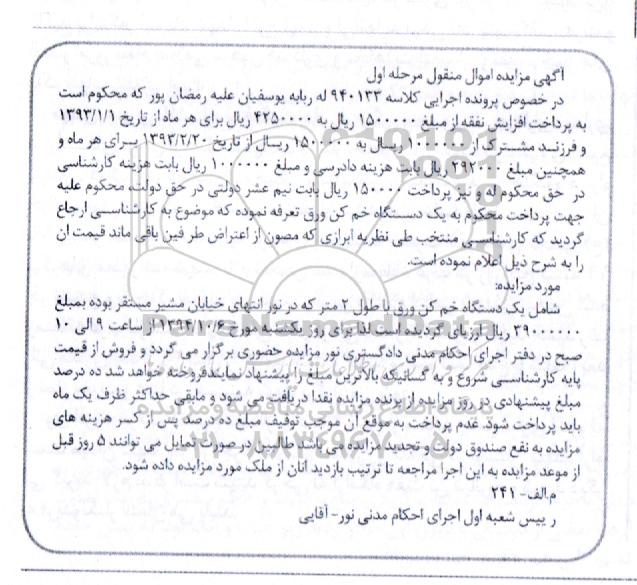 آگهی مزایده اموال منقول مرحله اول
در خصوص پرونده اجرایی کلاسه ۹۴۰۱۳۳ له ربابه یوسفیان علیه رمضان پور که محکوم است
به پرداخت افزایش نفقه از مبلغ ۱۵۰۰۰۰۰ ریال به ۴۲۵۰۰۰۰ ریال برای هر ماه از تاریخ ۱۳۹۳/۱/۱
و فرزند مشترک از ۱۰۰۰۰۰۰ ریسال به ۱۵۰۰۰۰۰ ریسال از تاریخ ۱۳۹۳/۲/۲۰ برای هر ماه و
همچنین مبلغ ۲۹۲۰۰۰ ریال بابت هزینه دادرسی و مبلغ ۱۰۰۰۰۰۰ ریال بابت هزینه کارشناسی
در حق محکوم له و نیز پرداخت ۱۵۰۰۰۰ ریال بابت نیم عشر دولتی در حق دولت، محکوم علیه
جهت پرداخت محکوم به یک دستگاه خم کن ورق تعرفه نموده که موضوع به کارشناسی ارجاع
گردید که کارشناسی منتخب طی نظریه ابرازی که مصون از اعتراض طر فین باقی ماند قیمت ان
را به شرح ذیل اعلام نموده است.
مورد مزایده:
شامل یک دستگاه خم کن ورق با طول ۲ متر که در نور انتهای خیابان مشیر مستقر بوده بمبلغ
۳۹۰۰۰۰۰۰ ریال ارزیابی گردیده است لذا برای روز یکشنبه مورخ ۱۳۹۴/۱۰/۶ از ساعت ۹ الی ۱۰
صبح در دفتر اجرای احکام مدنی دادگستری نور مزایده حضوری برگزار می گردد و فروش از قیمت
پایه کارشناسی شروع و به کسانیکه بالاترین مبلغ را پیشنهاد نمایندفروخته خواهد شد ده درصد
مبلغ پیشنهادی در روز مزایده از برنده مزایده نقدا دریافت می شود و مابقی حداکثر ظرف یک ماه
باید پرداخت شود. عدم پرداخت به موقع ان موجب توقیف مبلغ ده درصد پس از کسر هزینه های
مزایده به نفع صندوق دولت و تجدید مزایده می باشد طالبین در صورت تمایل می توانند ۵ روز قبل
از موعد مزایده به این اجرا مراجعه تا ترتیب بازدید انان از ملک مورد مزایده داده شود.
م/الف- ۲۴۱
ر ییس شعبه اول اجرای احکام مدنی نور- آقایی